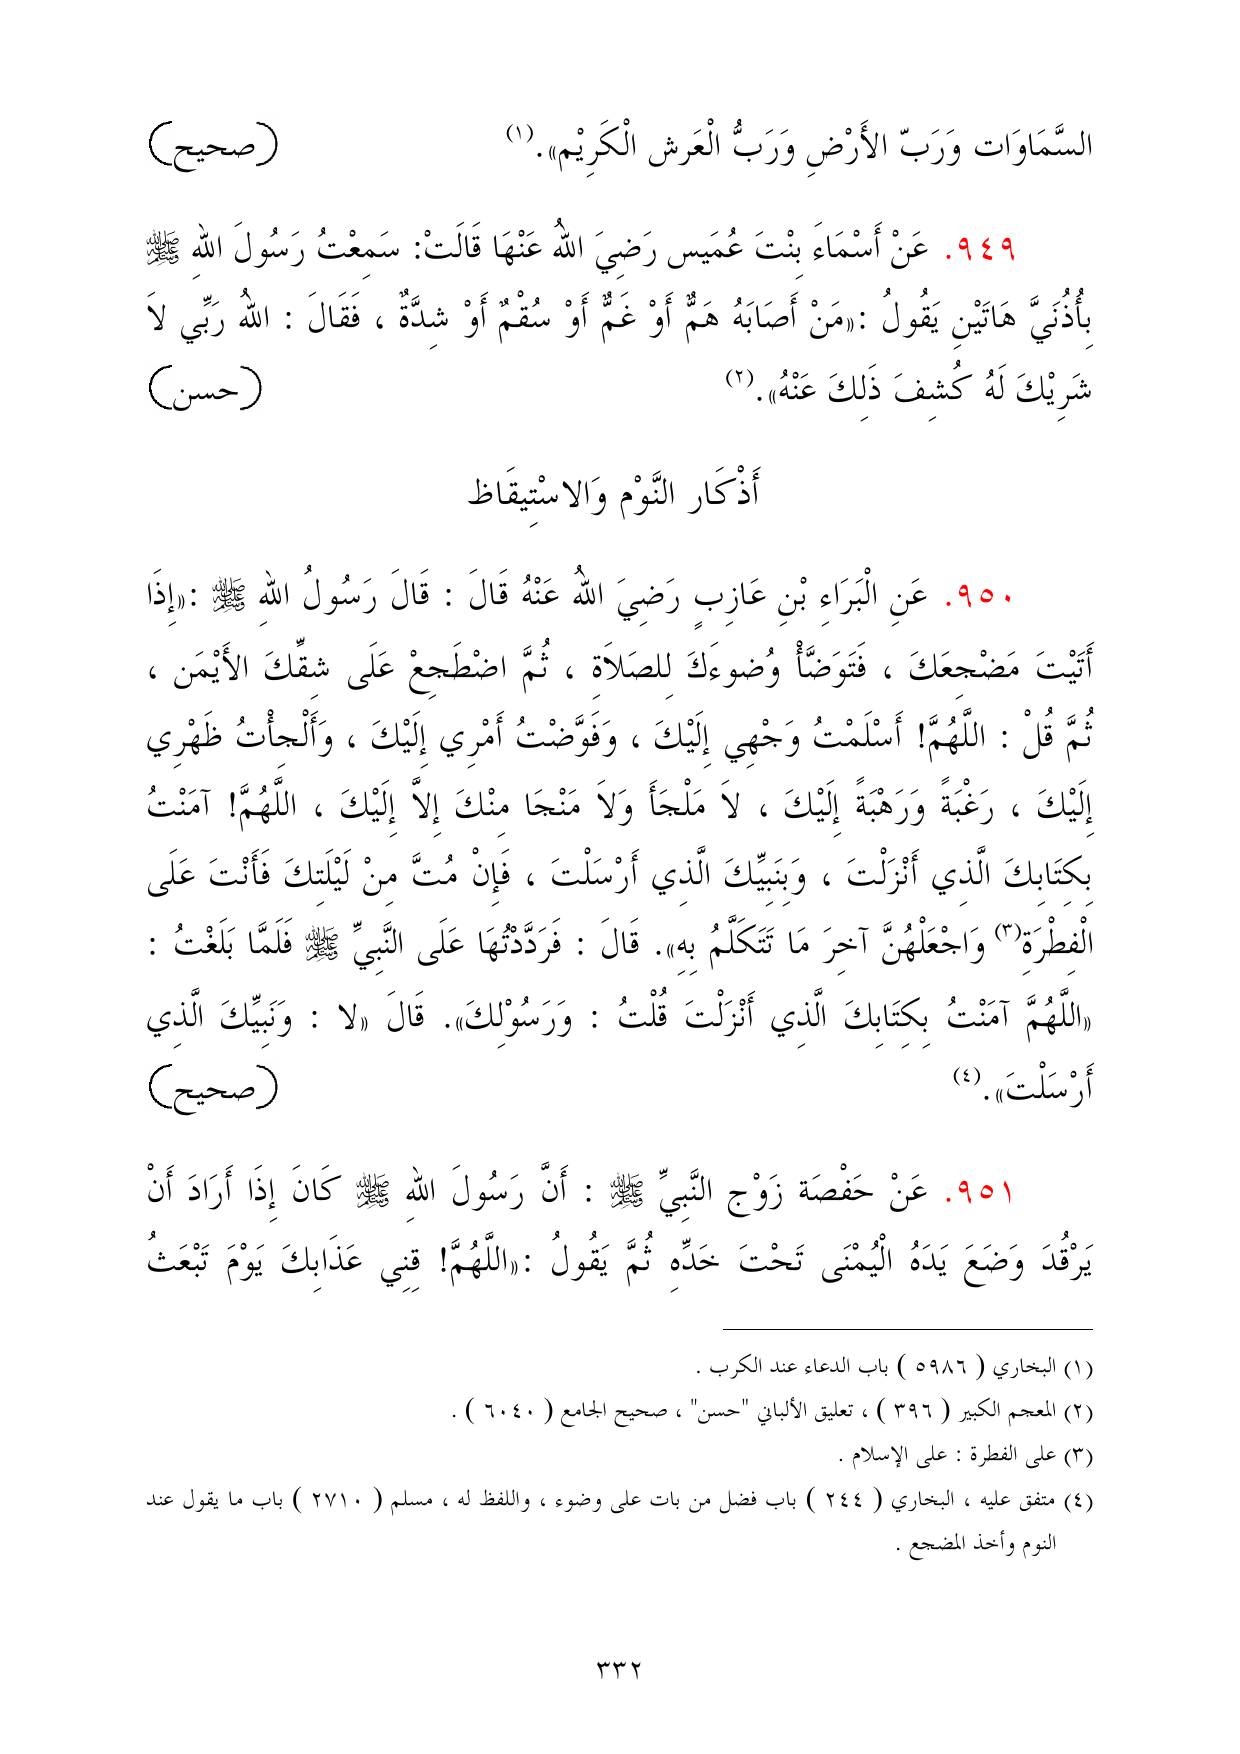 السَّمَاوَات وَرَبّ الأَرْضِ وَرَبُّ الْعَرش الْكَرِيْم».(١) (صحيح)
٩٤٩. عَنْ أَسْمَاءَ بِنْتَ عُمَيس رَضِيَ اللهُ عَنْهَا قَالَتْ: سَمِعْتُ رَسُولَ اللهِ ﷺ
بِأُذُنَيَّ هَاتَيْنِ يَقُولُ :«مَنْ أَصَابَهُ هَمٌّ أَوْ غَمٌّ أَوْ سُقْمٌ أَوْ شِدَّةٌ ، فَقَالَ : اللهُ رَبِّي لاَ
شَرِيْكَ لَهُ كُشِفَ ذَلِكَ عَنْهُ».(٢) (حسن)
أَذْكَار النَّوْم وَالاسْتِيقَاظ
٩٥٠. عَنِ الْبَرَاءِ بْنِ عَازِبٍ رَضِيَ اللهُ عَنْهُ قَالَ : قَالَ رَسُولُ اللهِ ﷺ :«إِذَا
أَتَيْتَ مَضْجِعَكَ ، فَتَوَضَّأْ وُضُوءَكَ لِلصَلاَةِ ، ثُمَّ اضْطَجِعْ عَلَى شِقِّكَ الأَيْمَنِ ،
ثُمَّ قُلْ : اللَّهُمَّ! أَسْلَمْتُ وَجْهِي إِلَيْكَ ، وَفَوَّضْتُ أَمْرِي إِلَيْكَ ، وَأَلْجِأْتُ ظَهْرِي
إِلَيْكَ ، رَغْبَةً وَرَهْبَةً إِلَيْكَ ، لاَ مَلْجَأَ وَلاَ مَنْجَا مِنْكَ إِلاَّ إِلَيْكَ ، اللَّهُمَّ! آمَنْتُ
بِكِتَابِكَ الَّذِي أَنْزَلْتَ ، وَبِنَبِيِّكَ الَّذِي أَرْسَلْتَ ، فَإِنْ مُتَّ مِنْ لَيْلَتِكَ فَأَنْتَ عَلَى
الْفِطْرَةِ(٣) وَاجْعَلْهُنَّ آخِرَ مَا تَتَكَلَّمُ بِهِ». قَالَ : فَرَدَّدْتُهَا عَلَى النَّبِيِّ ﷺ فَلَمَّا بَلَغْتُ :
«اللَّهُمَّ آمَنْتُ بِكِتَابِكَ الَّذِي أَنْزَلْتَ قُلْتُ : وَرَسُوْلِكَ». قَالَ «لا : وَنَبِيِّكَ الَّذِي
أَرْسَلْتَ».(٤) (صحيح)
٩٥١. عَنْ حَفْصَة زَوْج النَّبِيِّ ﷺ : أَنَّ رَسُولَ اللهِ ﷺ كَانَ إِذَا أَرَادَ أَنْ
يَرْقُدَ وَضَعَ يَدَهُ الْيُمْنَى تَحْتَ خَدِّهِ ثُمَّ يَقُولُ :«اللَّهُمَّ! قِنِي عَذَابِكَ يَوْمَ تَبْعَثُ
(١) البخاري ( ٥٩٨٦ ) باب الدعاء عند الكرب .
(٢) المعجم الكبير ( ٣٩٦ ) ، تعليق الألباني "حسن" ، صحيح الجامع ( ٦٠٤٠ ) .
(٣) على الفطرة : على الإسلام .
(٤) متفق عليه ، البخاري ( ٢٤٤ ) باب فضل من بات على وضوء ، واللفظ له ، مسلم ( ٢٧١٠ ) باب ما يقول عند
النوم وأخذ المضجع .
٣٣٢